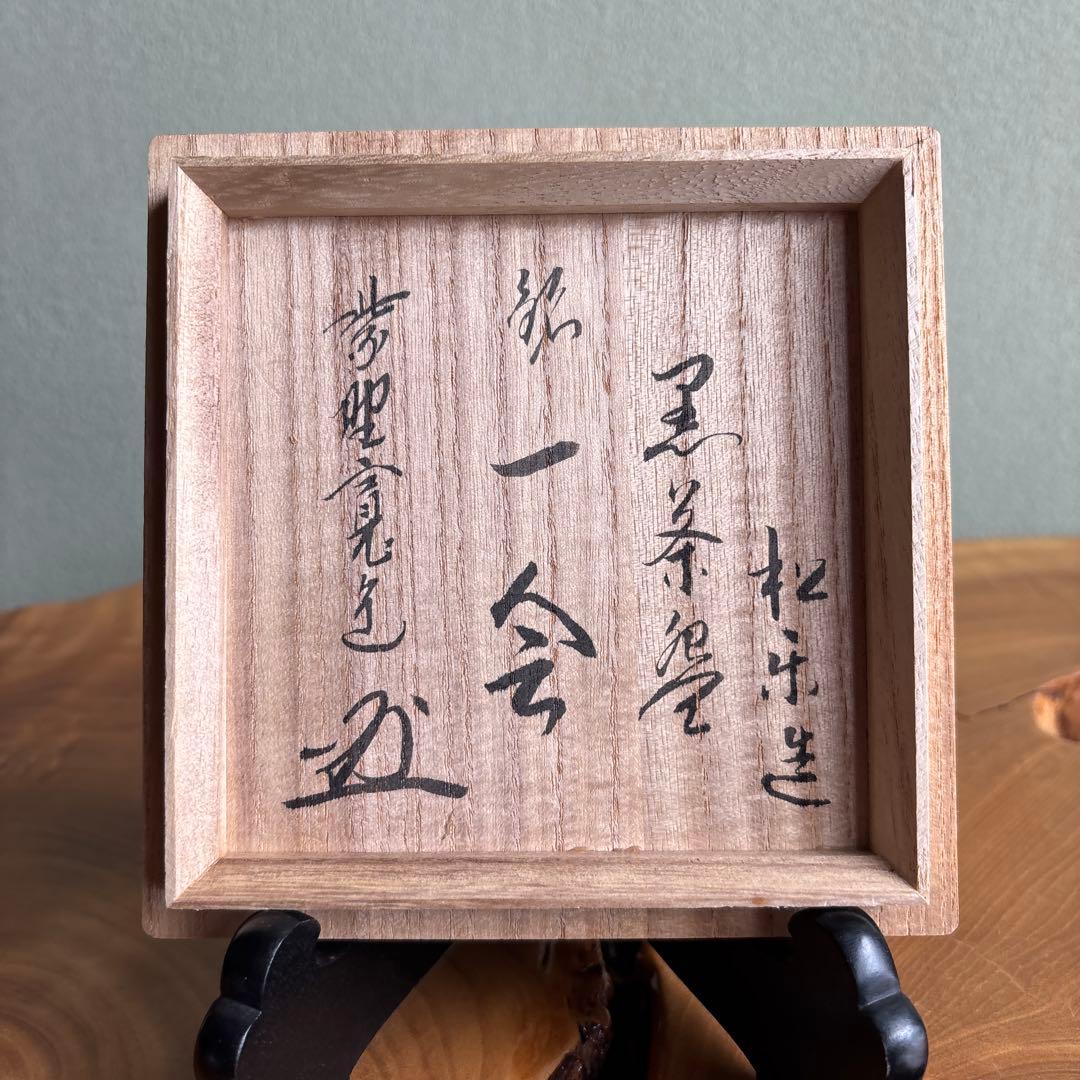 松楽造
黒茶盌
銘
一会
紫野寛道